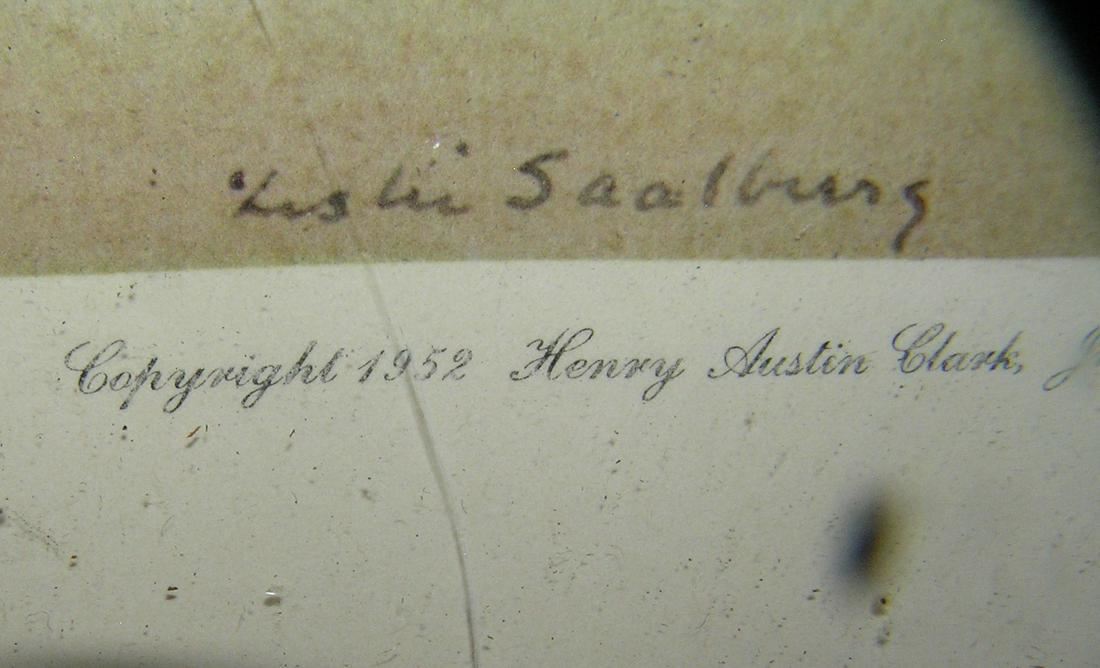 Leslie Saalburg
Copyright 1952 Henry Austin Clark,